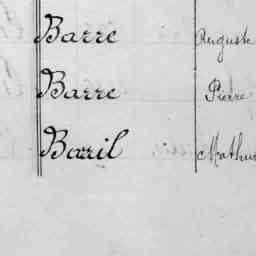 Barre Auguste
Barre Pierre
Barril